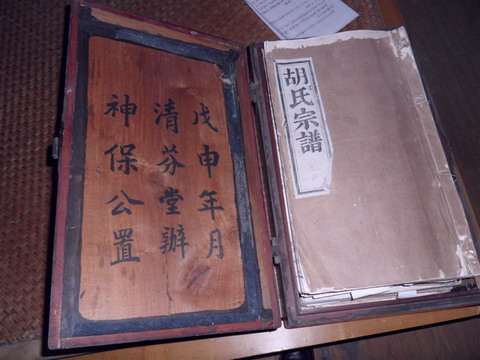 戊申年月
清芬堂辦
神保公置
胡氏宗譜